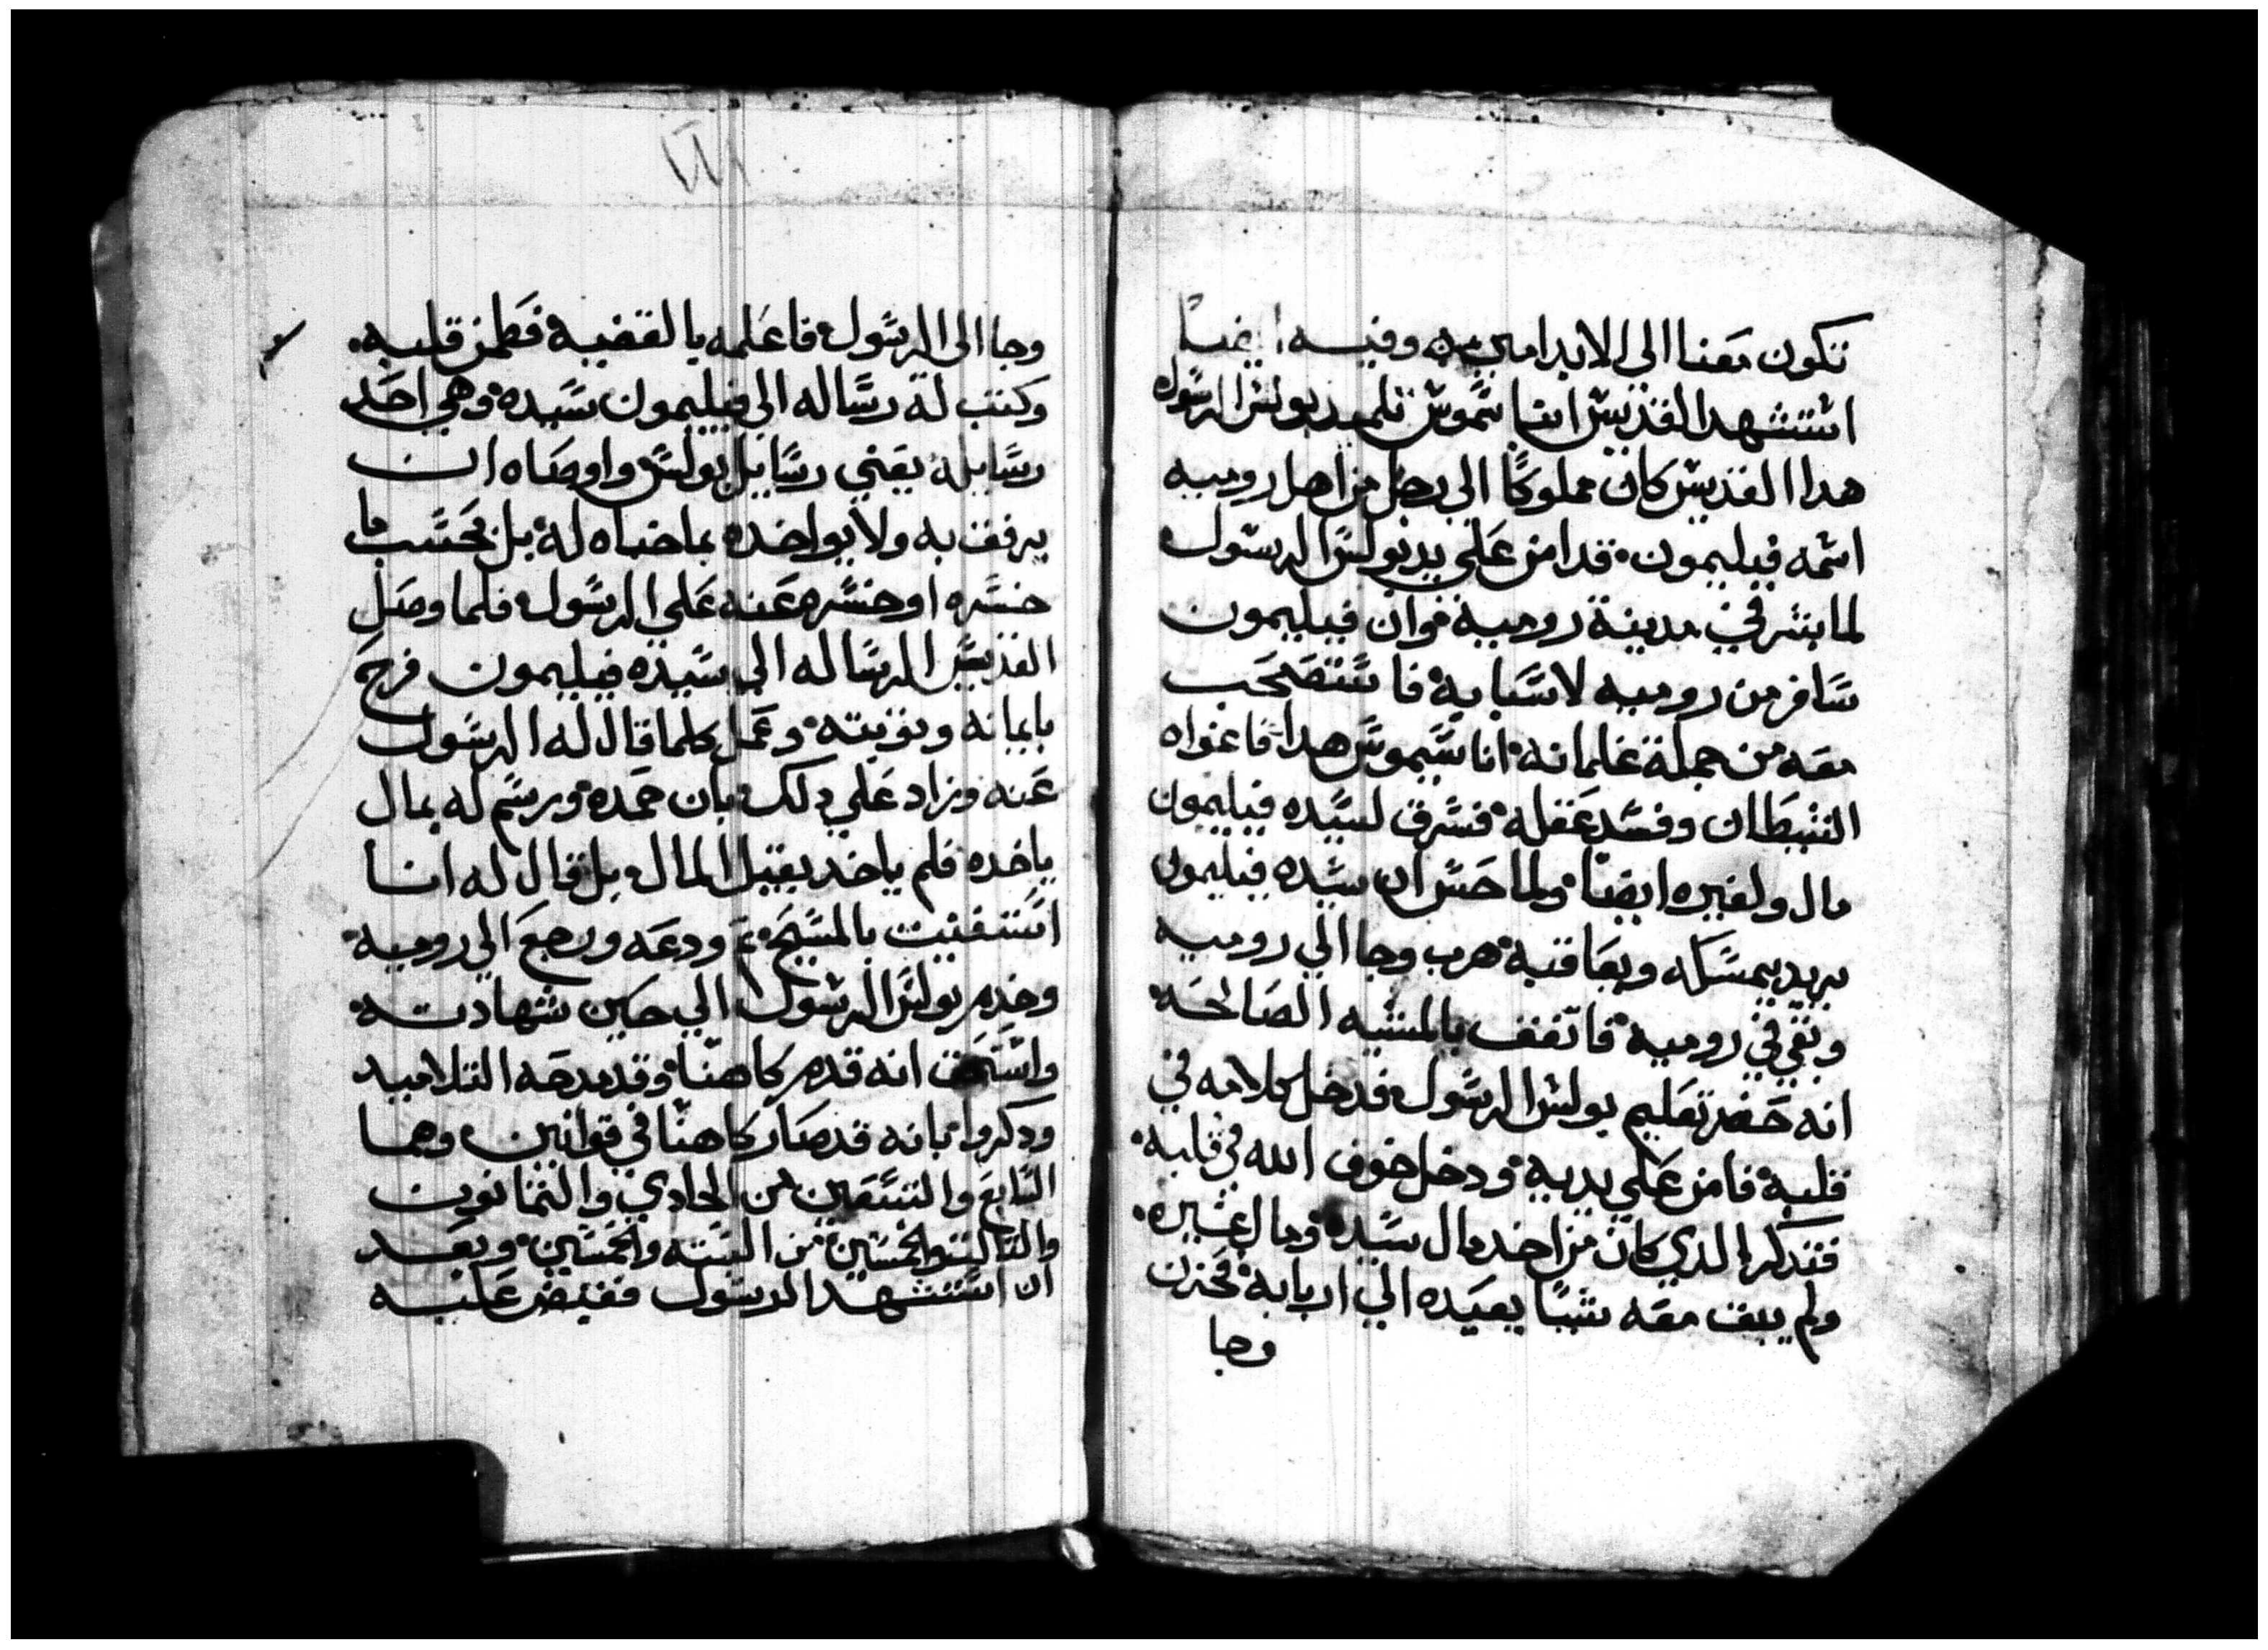 تكون معنا الي الابد امين وفيه ايضا
استشهد القديس انا سموس تلميد بولس الرسول
هدا القديس كان مملوكا الي رجل من اهل روميه
اسمه فيليمون قد امن علي يد بولس الرسول
لما بشر في مدينة رومية وان فيليمون
سافر من روميه لاسبابه فاستصحب
معه من جملة غلمانه اناسيموس هدا فاغواه
الشيطان وفسد عقله فسرق لسيده فيليمون
مال ولغيره ايضا ولما حس ان سيده فيليمون
يريد يمسكه ويعاقبه هرب وجا الي روميه
وبقي في روميه فاتفف بالمشيه الصالحه
انه حضر تعليم بولس الرسول فدخل كلامه في
قلبه فامن علي يديه ودخل خوف الله في قلبه
فتدكر الدي كان من اخد مال سيده ومال غيره
ولم يبف معه شيا يعيده الي اربابه فحزن
وجا
وجا الى الرسول فاعلمه بالقضية فطمن قلبه
وكتب له رساله الي فيليمون سيده وهي احد
رسايله يعني رسايل بولس واوصاه ان
يرفف به ولا يواخده بما جناه له بل يحسب ما
خسره او خسره عنه علي الرسول فلما وصل
القديس الرساله الي سيده فيليمون فرح
بايمانه وتوبته وعمل كلما قال له الرسول
عنه وزاد علي دلك بان حمده ورسم له بمال
ياخده فلم ياخد يقبل المال بل قال له انا
استغنيت بالمسيح تم ودعه ورجع الي روميه
وخدم بولس الرسول الي حين شهادته
واستحف انه قدم كاهنا وقد مدحه التلاميد
ودكروا بانه قد صار كاهنا في قوانين وهما
التابع والتسعين من الحادي والتمانون
والتالت والخمسين من السته والخمسين وبعد
ان استشهد الرسول فقبض عليه